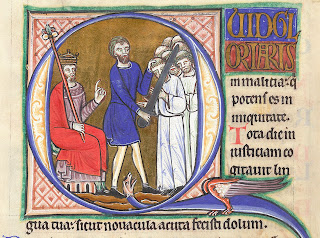 Q
UIDGL
ORIARIS
in malicia: q
potens es in
iniquitate.
Tota die in
iusticiam co
gitauit lin
gua tua: sicut nouacula acuta fecisti dolum.